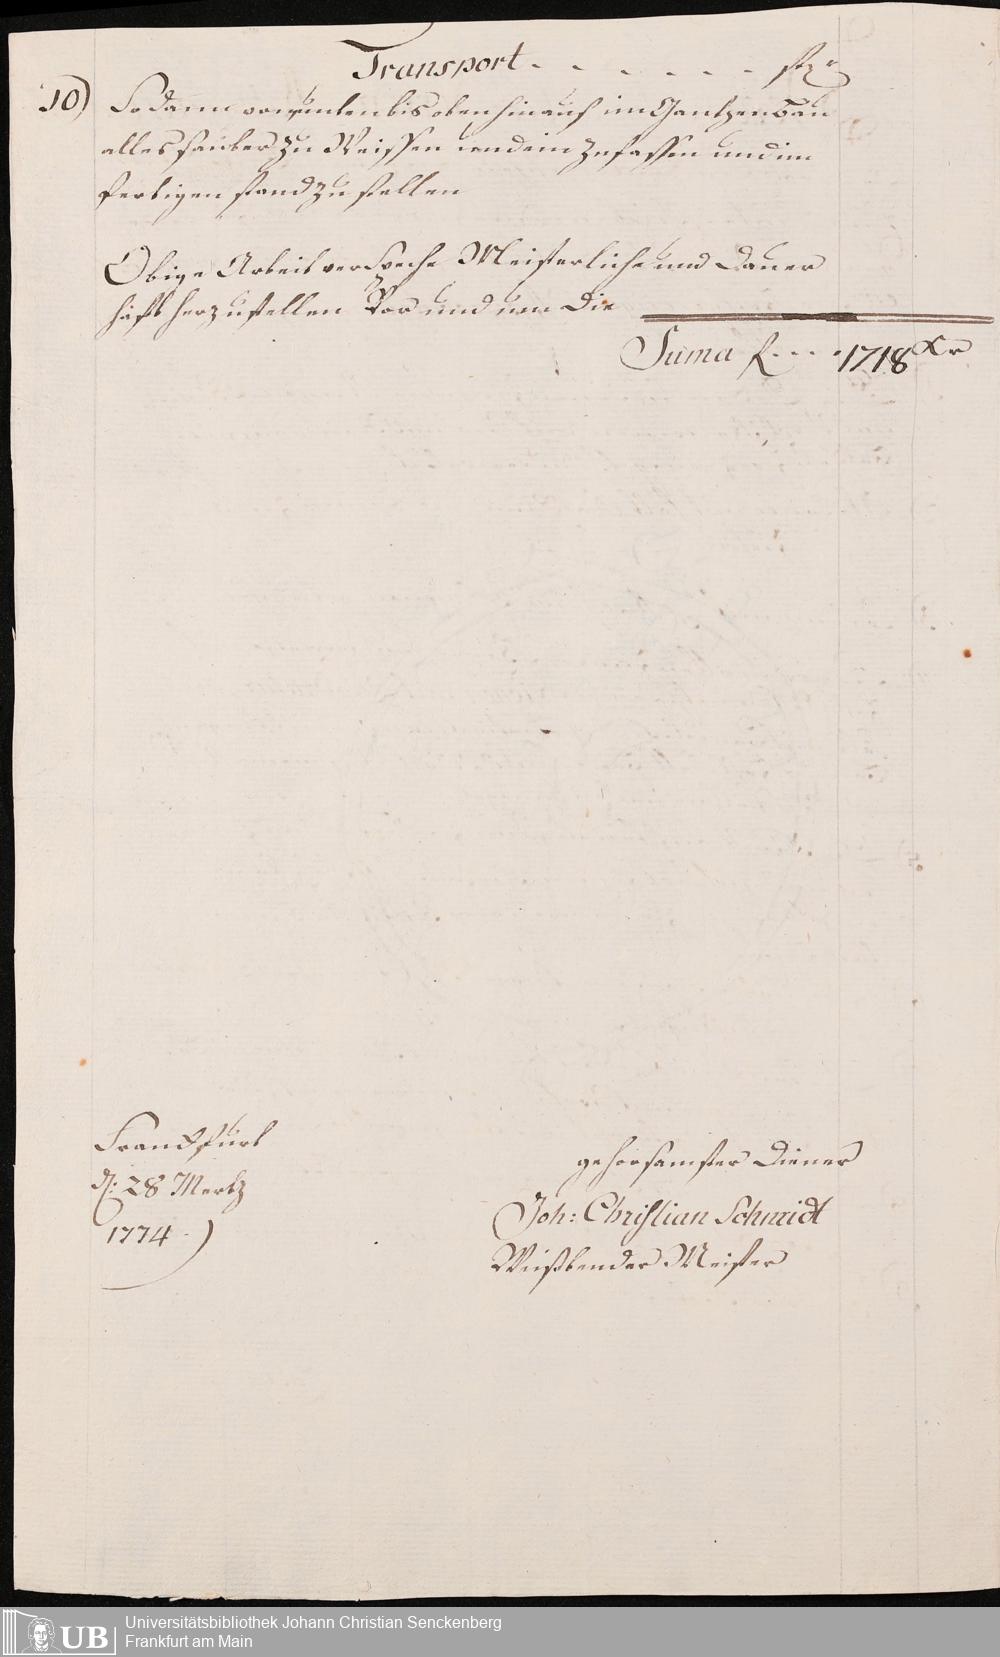 Transport - - - - - -
10) So dann von unten bis oben hinauf im Gantzen Bau
alles sauber zu Weissen und ein zufassen und im
fertigen stand zu stellen
Obige Arbeit verspreche Meisterliche und Dauer
haft herzustellen Vor und um Die
Suma f. - - - 1718 Xr
Franckfurt
d: 28 Mertz
1774
gehorsamster Diener
Joh: Christian Schmidt
Weißbender Meister
UB Universitätsbibliothek Johann Christian Senckenberg
Frankfurt am Main